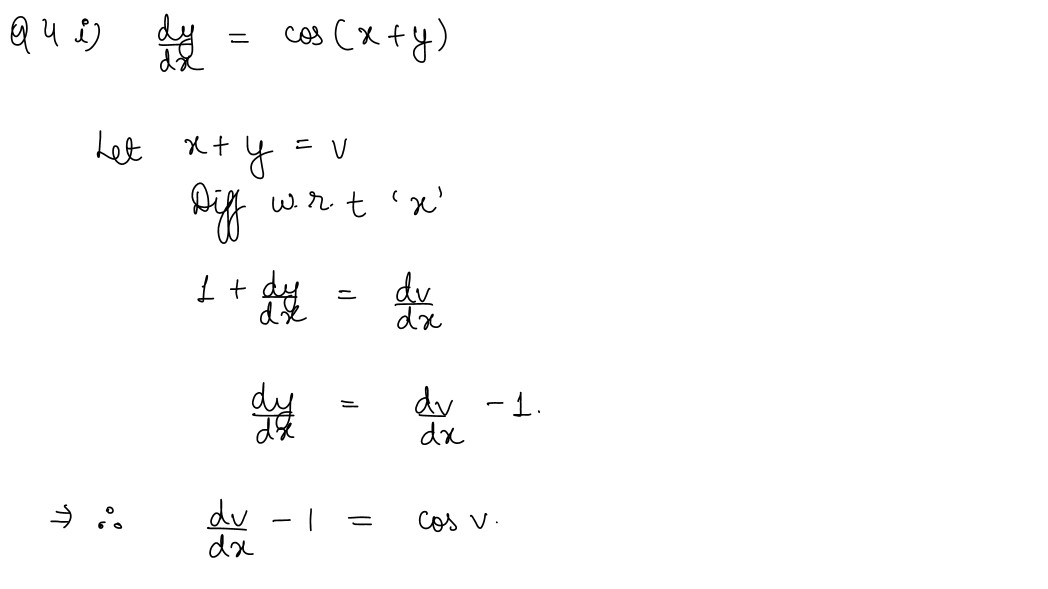 Q4 i) dy/dx = cos(x+y)
Let x+y = v
Diff w.r.t 'x'
1 + dy/dx = dv/dx
dy/dx = dv/dx - 1.
⇒ ∴ dv/dx - 1 = cos v.